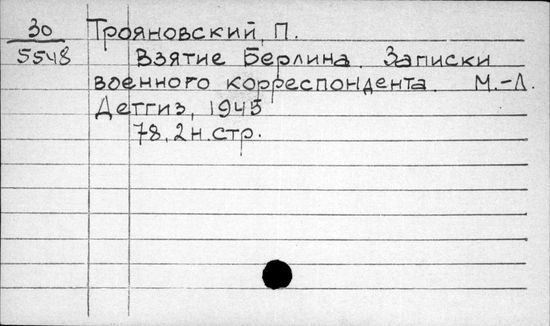 30 Трояновский, П.
5548 Взятие Берлина. Записки
военного корреспондента. М.-Л.
Детгиз, 1945
78, 2 н. стр.